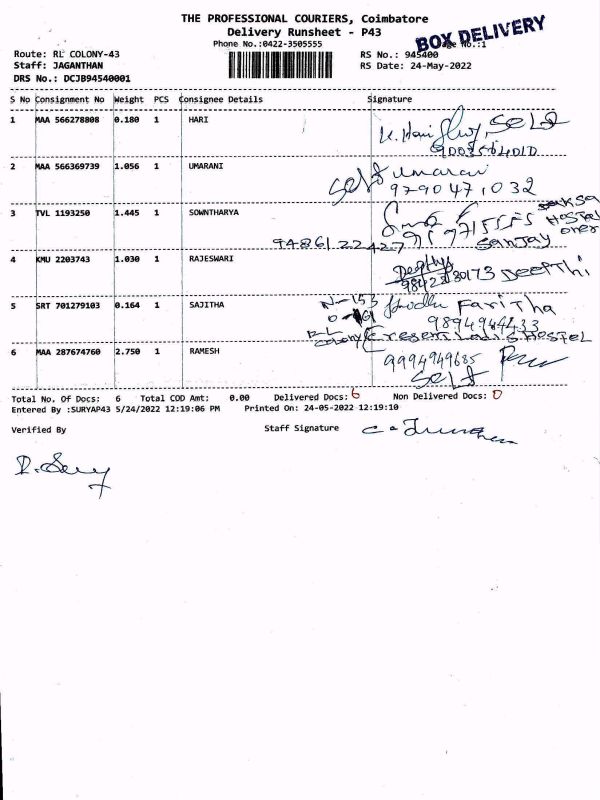 THE PROFESSIONAL COURIERS, Coimbatore
Delivery Runsheet - P43
Phone No.:0422-3505555
BOX DELIVERY
Page No.:1
Route: RL COLONY-43
RS No.: 945400
Staff: JAGANTHAN
RS Date: 24-May-2022
DRS No.: DCJB94540001
S No Consignment No Weight PCS Consignee Details Signature
1 MAA 566278808 0.180 1 HARI
K. Hari SELF
2 MAA 566369739 1.056 1 UMARANI
Self Umarani
9790471032
3 TVL 1193250 1.445 1 SOWNTHARYA
HOSTEL
9486122427 SANJAY
4 KMU 2203743 1.030 1 RAJESWARI
Deepthi DEEPTHI
5 SRT 701279103 0.164 1 SAJITHA
N-153 Faritha
9894944433
RL Colony HOSTEL
6 MAA 287674760 2.750 1 RAMESH
9994949685
SELF
Total No. Of Docs: 6 Total COD Amt: 0.00 Delivered Docs: 6 Non Delivered Docs: 0
Entered By :SURYAP43 5/24/2022 12:19:06 PM Printed On: 24-05-2022 12:19:10
Verified By Staff Signature